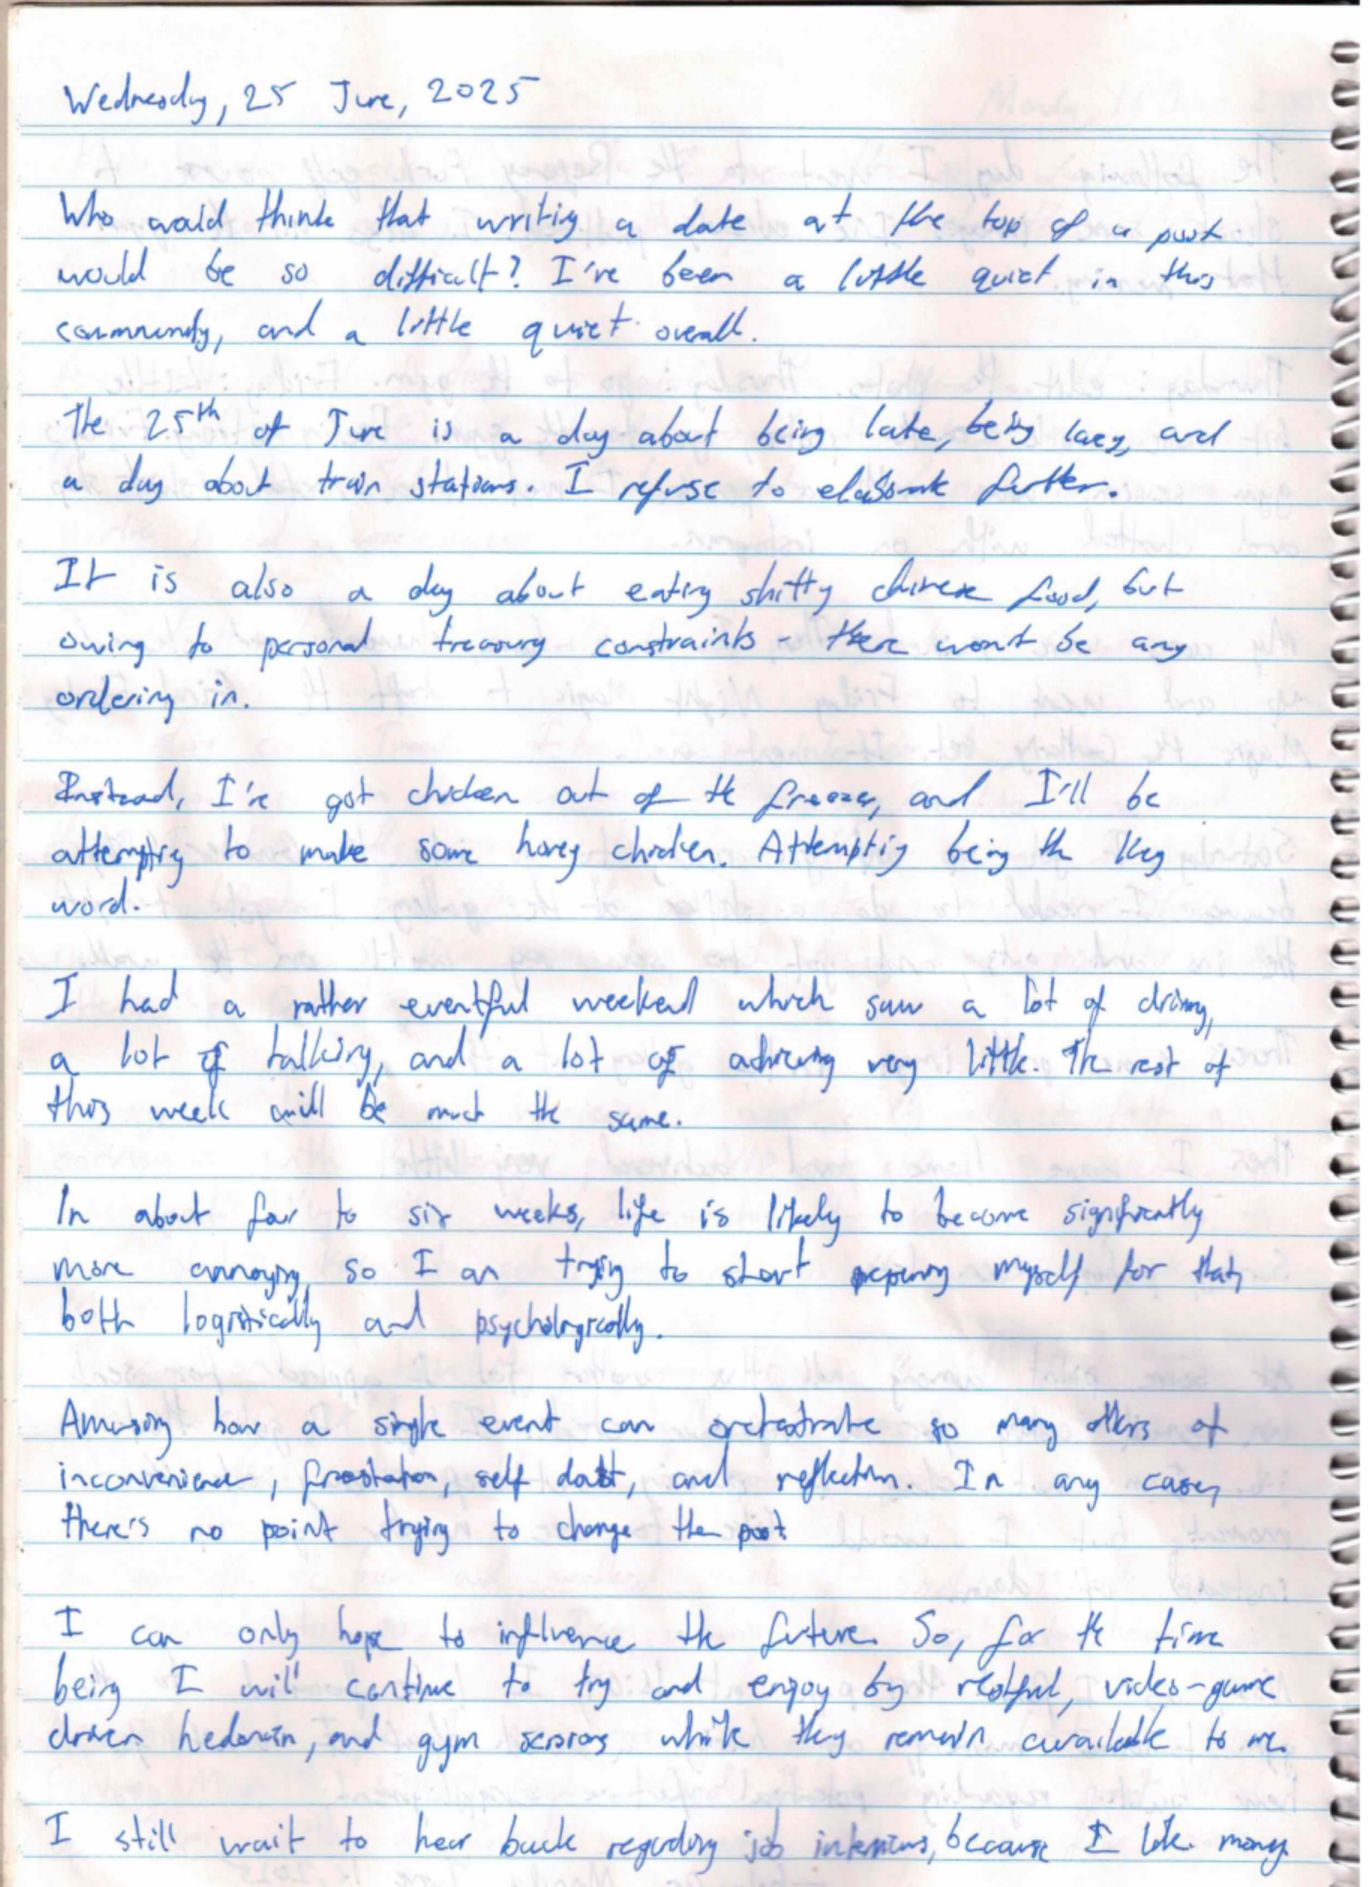 Wednesday, 25 June, 2025
Who would think that writing a date at the top of a post
would be so difficult? I've been a little quiet in this
community, and a little quiet overall.
The 25th of June is a day about being late, being lazy, and
a day about train stations. I refuse to elaborate further.
It is also a day about eating shitty chinese food, but
owing to personal treasury constraints - there won't be any
ordering in.
Instead, I've got chicken out of the freezer, and I'll be
attempting to make some honey chicken. Attempting being the key
word.
I had a rather eventful weekend which saw a lot of driving,
a lot of talking, and a lot of achieving very little. The rest of
this week will be much the same.
In about four to six weeks, life is likely to become significantly
more annoying, so I am trying to start preparing myself for that,
both logistically and psychologically.
Amusing how a single event can orchestrate so many others of
inconvenience, frustration, self doubt, and reflection. In any case,
there's no point trying to change the past.
I can only hope to influence the future. So, for the time
being I will continue to try and enjoy by restful, video-game
driven hedonism, and gym sessions while they remain available to me.
I still wait to hear back regarding job interviews, because I like money.